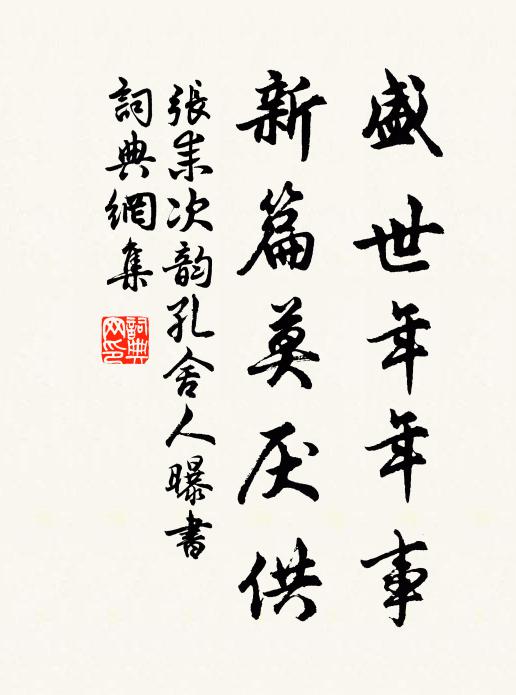 盛世年年事
新篇莫厌供
張耒次韵孔舍人曝書
詞典網集
詞典网印